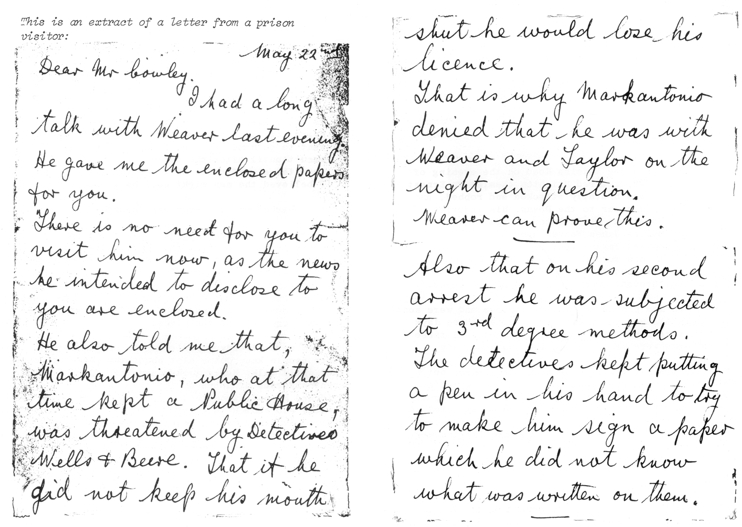 This is an extract of a letter from a prison
visitor:
May 22nd
Dear Mr Cowley.
I had a long
talk with Weaver last evening.
He gave me the enclosed papers
for you.
There is no need for you to
visit him now, as the news
he intended to disclose to
you are enclosed.
He also told me that,
Markantonio, who at that
time kept a Public House,
was threatened by Detectives
Wells & Beere. That if he
did not keep his mouth
shut he would lose his
licence.
That is why Markantonio
denied that he was with
Weaver and Taylor on the
night in question.
Weaver can prove this.
Also that on his second
arrest he was subjected
to 3rd degree methods.
The detectives kept putting
a pen in his hand to try
to make him sign a paper
which he did not know
what was written on them.